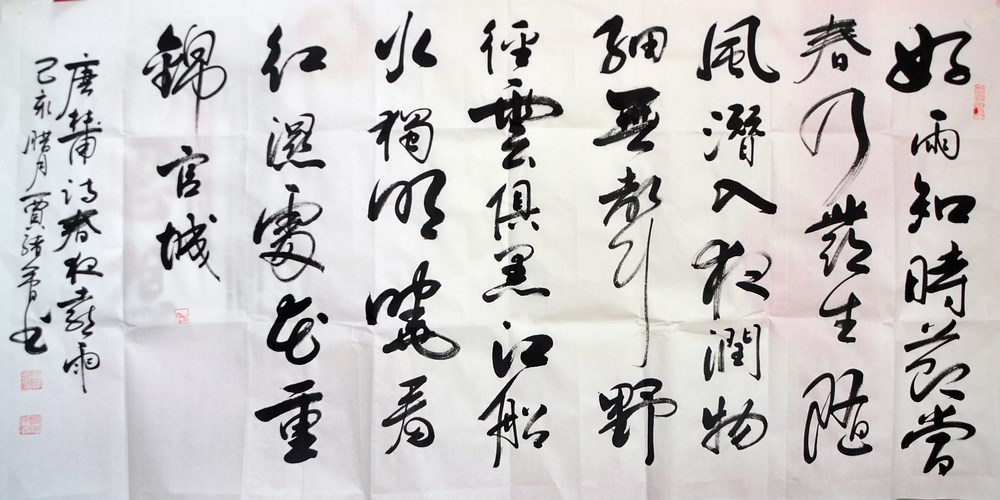 好雨知時節當
春乃發生隨
風潛入夜潤物
細無聲野
徑雲俱黑江船
火獨明曉看
紅濕處花重
錦官城
唐杜甫詩春夜喜雨
己亥腊月賈书